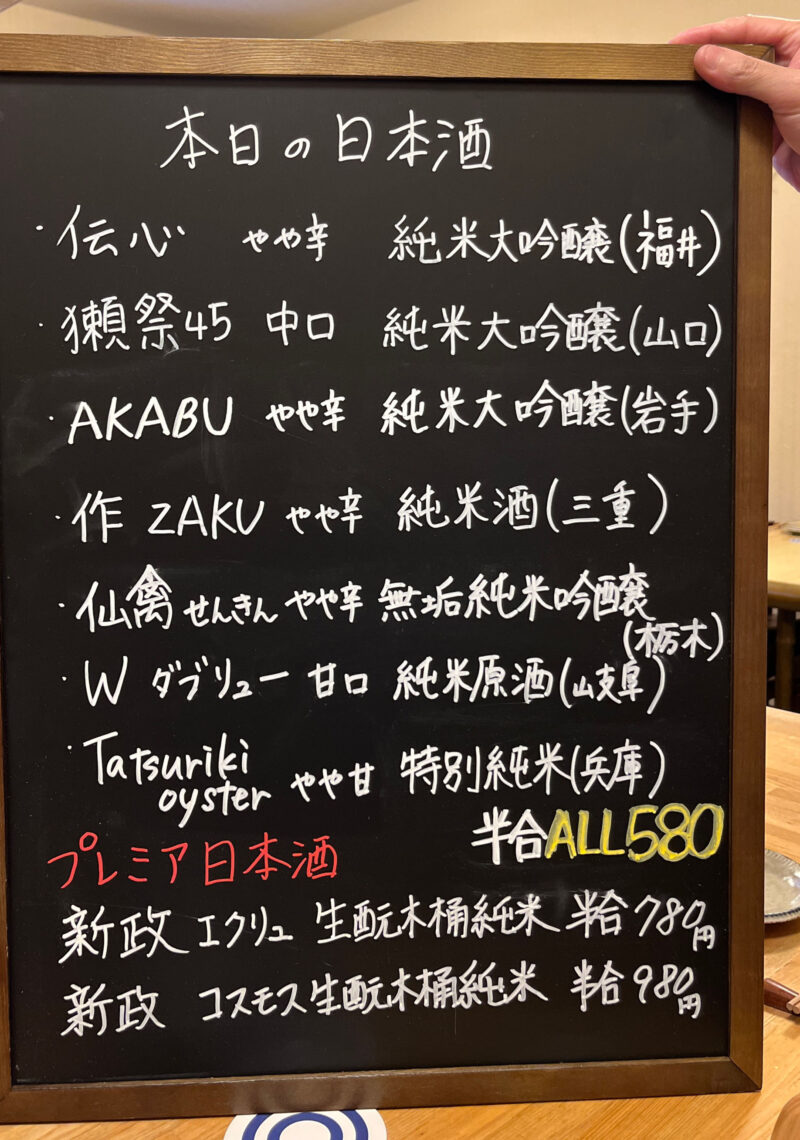 本日の日本酒
・伝心 やや辛 純米大吟醸(福井)
・獺祭45 中口 純米大吟醸(山口)
・AKABU やや辛 純米大吟醸(岩手)
・作 ZAKU やや辛 純米酒(三重)
・仙禽 せんきん やや辛 無垢純米吟醸
(栃木)
・W ダブリュー 甘口 純米原酒(岐阜)
・Tatsuriki
oyster やや甘 特別純米(兵庫)
半合ALL580
プレミア日本酒
新政 エクリュ 生酛木桶純米 半合780円
新政 コスモス生酛木桶純米 半合980円